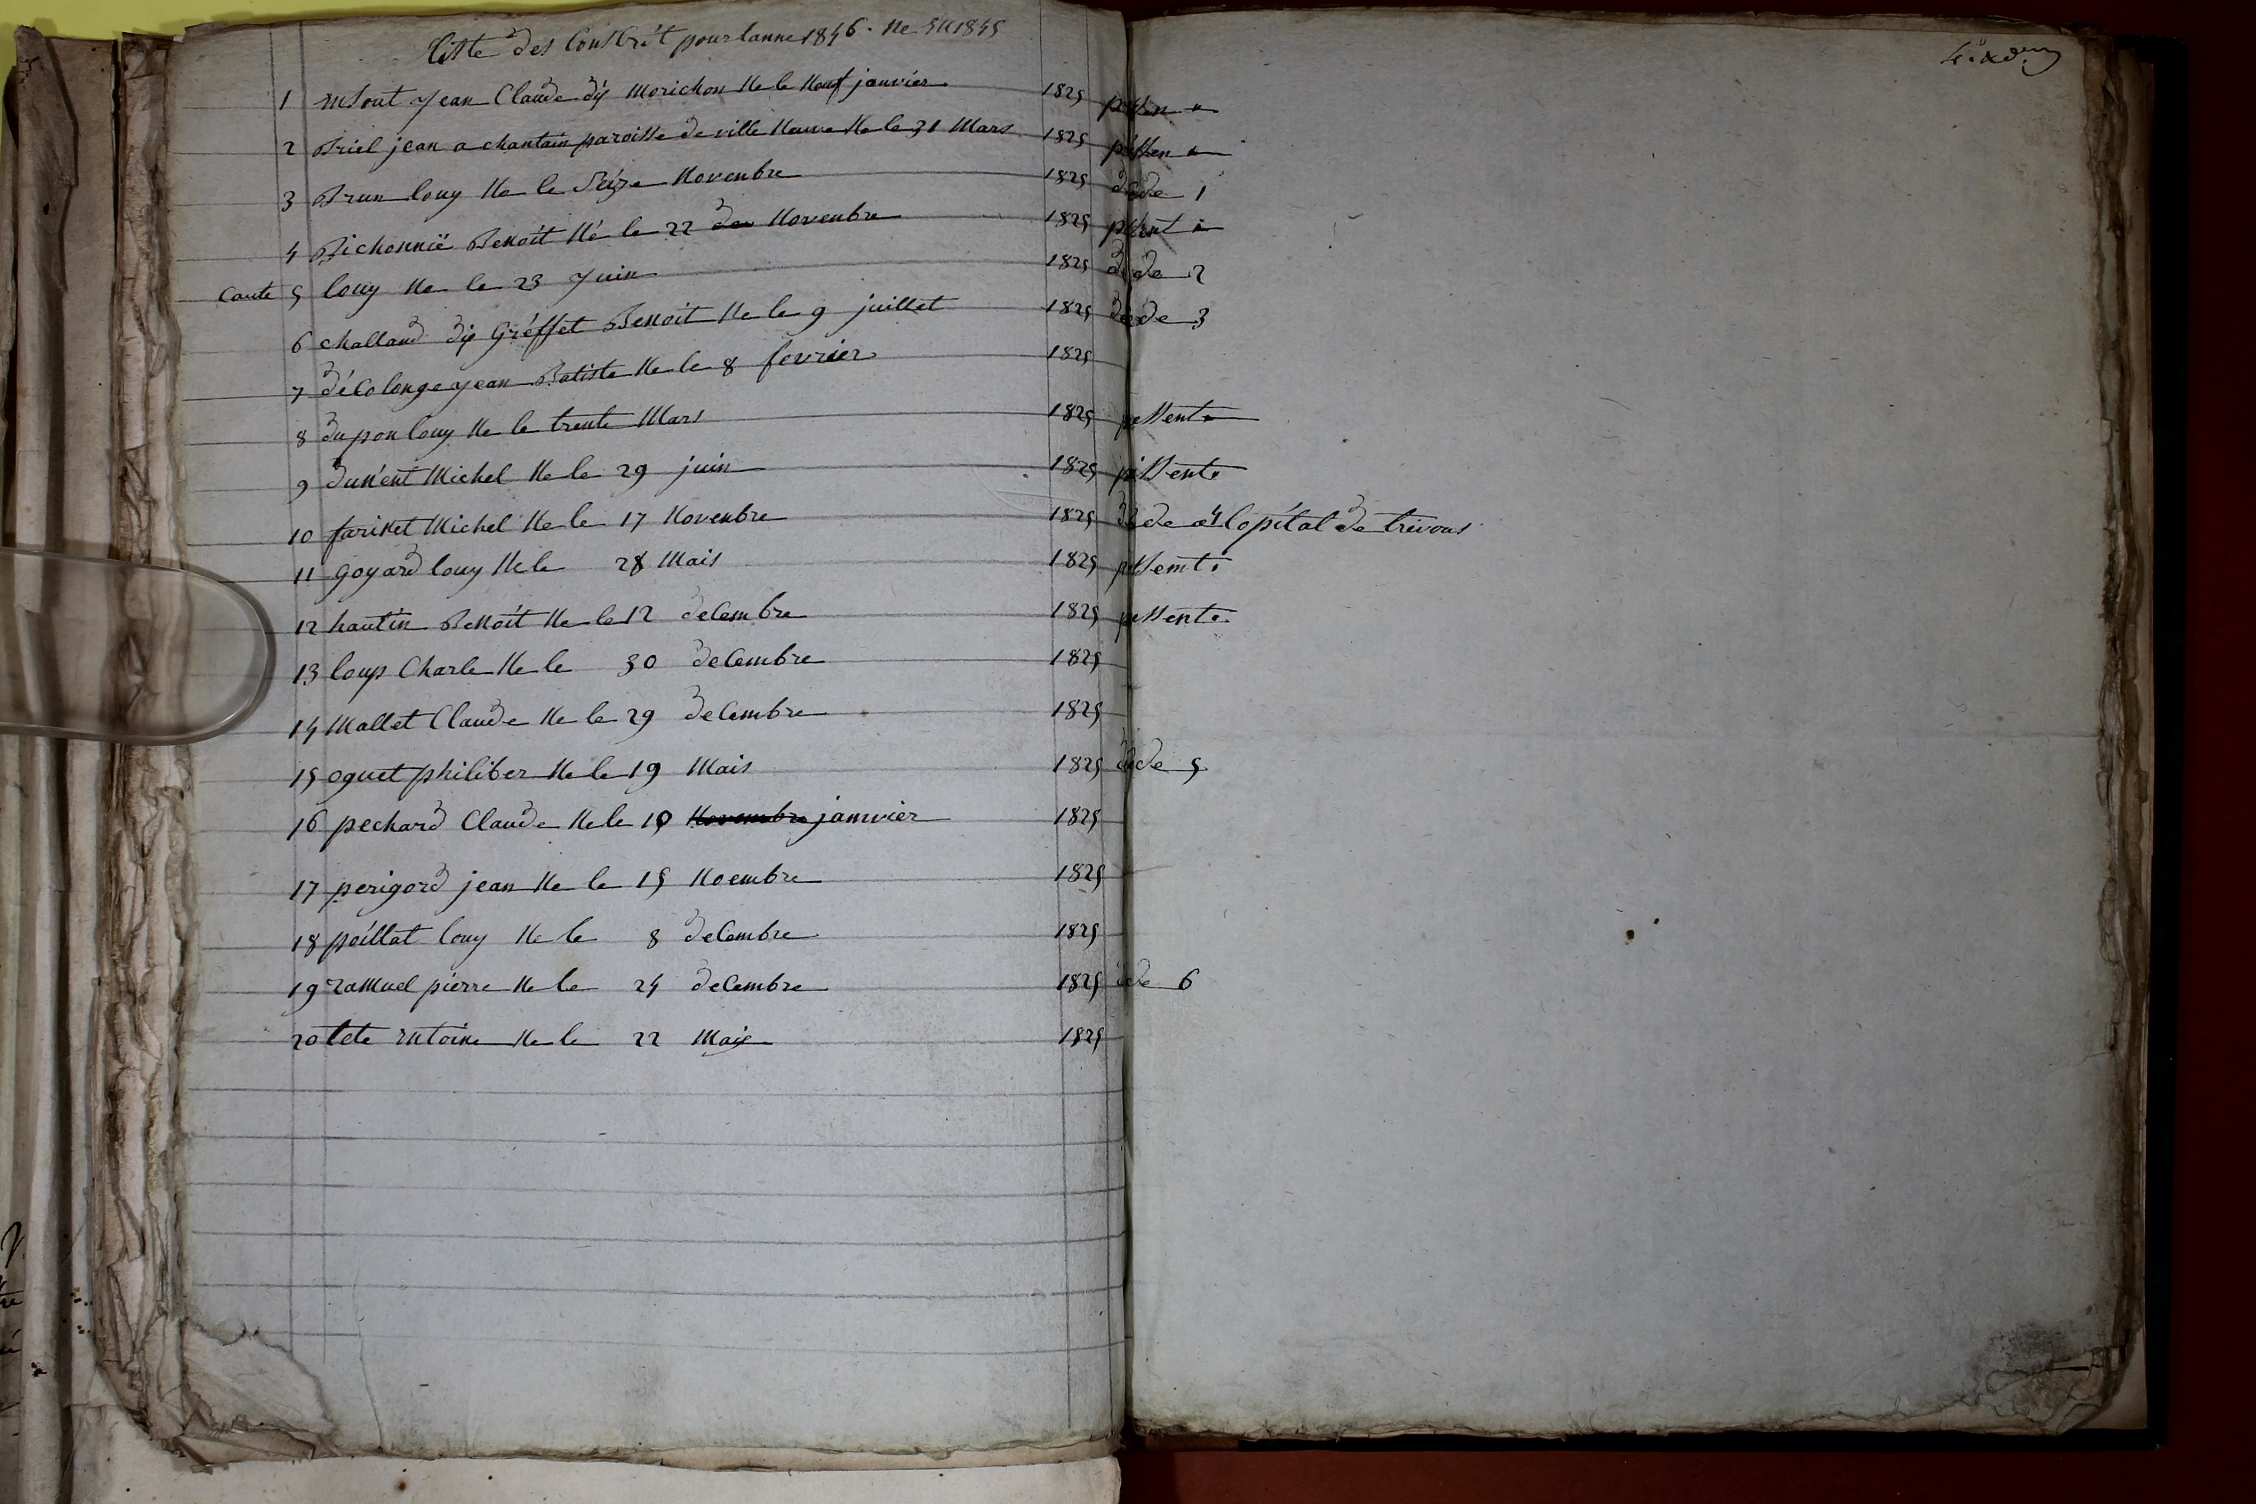 Liste des Conscrit pour lanne 1846. Ne en 1825
1 Jean Claude dis Morichon Ne le Neuf janvier 1825
2 Briel jean a chantain paroisse de ville Neuve Ne le 31 Mars 1825
3 Brun louy Ne le Seize Novenbre 1825 dede 1
4 Bichonnié Benoit Né le 22 de Novenbre 1825
5 louy Ne le 23 Juin 1825 dede 2
6 challand dis Gréffet Benoit Ne le 9 juillet 1825 dede 3
7 décolonge jean Batiste Ne le 8 fevrier 1825
8 dupon louy Ne le trente Mars 1825 pessent
9 Michel Ne le 29 juin 1825 pissent
10 farinet Michel Ne le 17 Novenbre 1825 dede a 4 lopital de trivous
11 goyard louy Ne le 28 Mais 1825 pessemt
12 hautin Benoit Ne le 12 decembre 1825 pessent
13 loup Charle Ne le 30 decembre 1825
14 Mallet Claude Ne le 29 decembre 1825
15 oguet philiber Ne le 19 Mais 1825 dede 5
16 pechard Claude Ne le Novembre janvier 1825
17 perigord jean Ne le 15 Noembre 1825
18 poillat louy Ne le 8 decembre 1825
19 ramuel pierre Ne le 24 decembre 1825 dede 6
20 tete antoine Ne le 22 Mais 1825